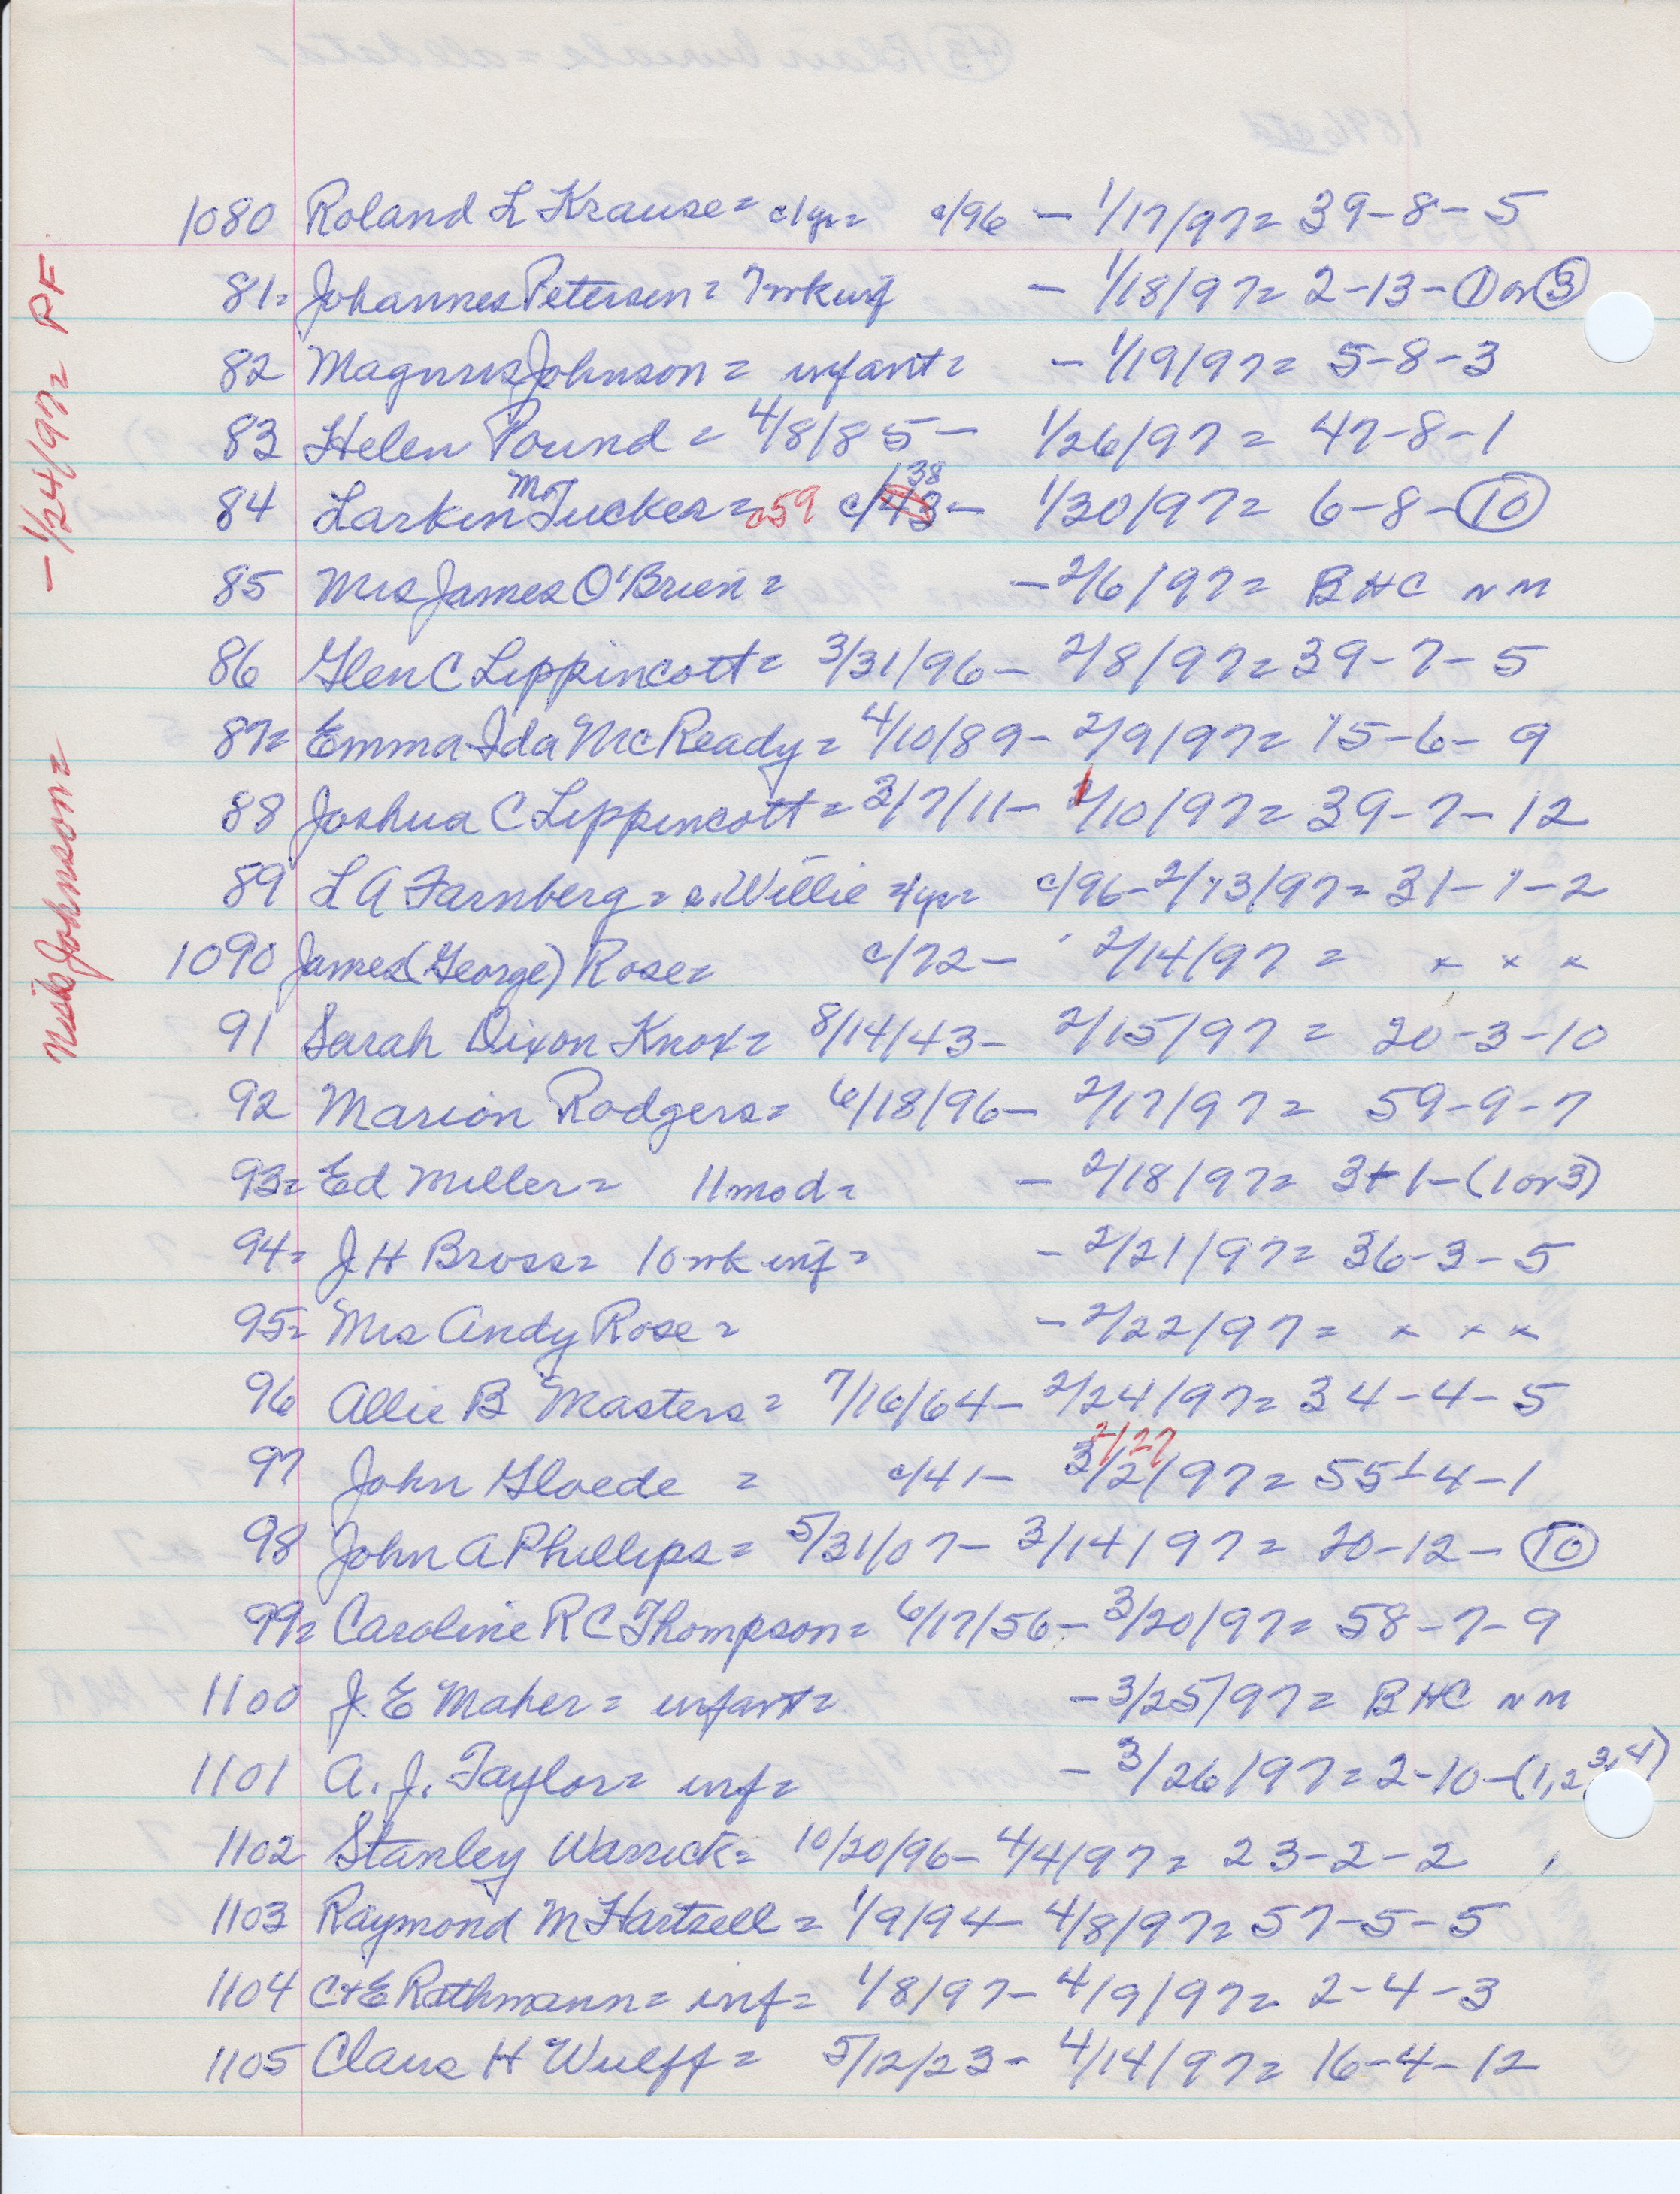 1080 Roland L Krause = c1yr= c/96 - 1/17/97= 39-8-5
81= Johannes Petersen= 7wk inf - 1/18/97= 2-13-① or ③
82 Magnus Johnson = infant= - 1/19/97= 5-8-3
83 Helen Pound = 4/8/85 - 1/26/97 = 47-8-1
84 Larkin M Tucker = c59 c/43 138 - 1/30/97= 6-8-⑩
85 Mrs James O'Brien = - 2/6/97= BHC NM
86 Glen C Lippincott= 3/31/96 - 2/8/97= 39-7-5
87= Emma Ida McReady= 4/10/89 - 2/9/97= 15-6-9
88 Joshua C Lippincott = 3/7/11 - 1/10/97= 39-7-12
89 L A Farnberg = Willie =1yr= c/96 - 2/13/97= 31-1-2
1090 James (George) Rose= c/72 - 2/14/97 = x x x
91 Sarah Dixon Knox= 8/14/43 - 2/15/97 = 20-3-10
92 Marion Rodgers= 6/18/96 - 2/17/97 = 59-9-7
93= Ed Miller = 11mod= - 2/18/97= 3+1-(1 or 3)
94= J H Bross= 10wk inf = - 2/21/97= 36-3-5
95= Mrs Andy Rose = - 2/22/97= x x x
96 Allie B Masters = 7/16/64 - 2/24/97= 34-4-5
2/27
97 John Gloede = c/41 - 3/2/97= 55-4-1
98 John A Phillips= 5/31/07 - 3/14/97 = 20-12-⑩
99= Caroline R C Thompson= 6/17/56 - 3/20/97= 58-7-9
1100 J. E Maher = infant= - 3/25/97= BHC NM
1101 A. J. Taylor= inf= - 3/26/97= 2-10-(1,2 3,4)
1102 Stanley Warrick= 10/20/96 - 4/4/97= 23-2-2
1103 Raymond M Hartsell = 1/9/94 - 4/8/97= 57-5-5
1104 C+E Rathmann= inf= 1/8/97 - 4/9/97= 2-4-3
1105 Claus H Wulff = 5/12/23 - 4/14/97= 16-4-12
Miss Johnson= - 1/24/97= RF